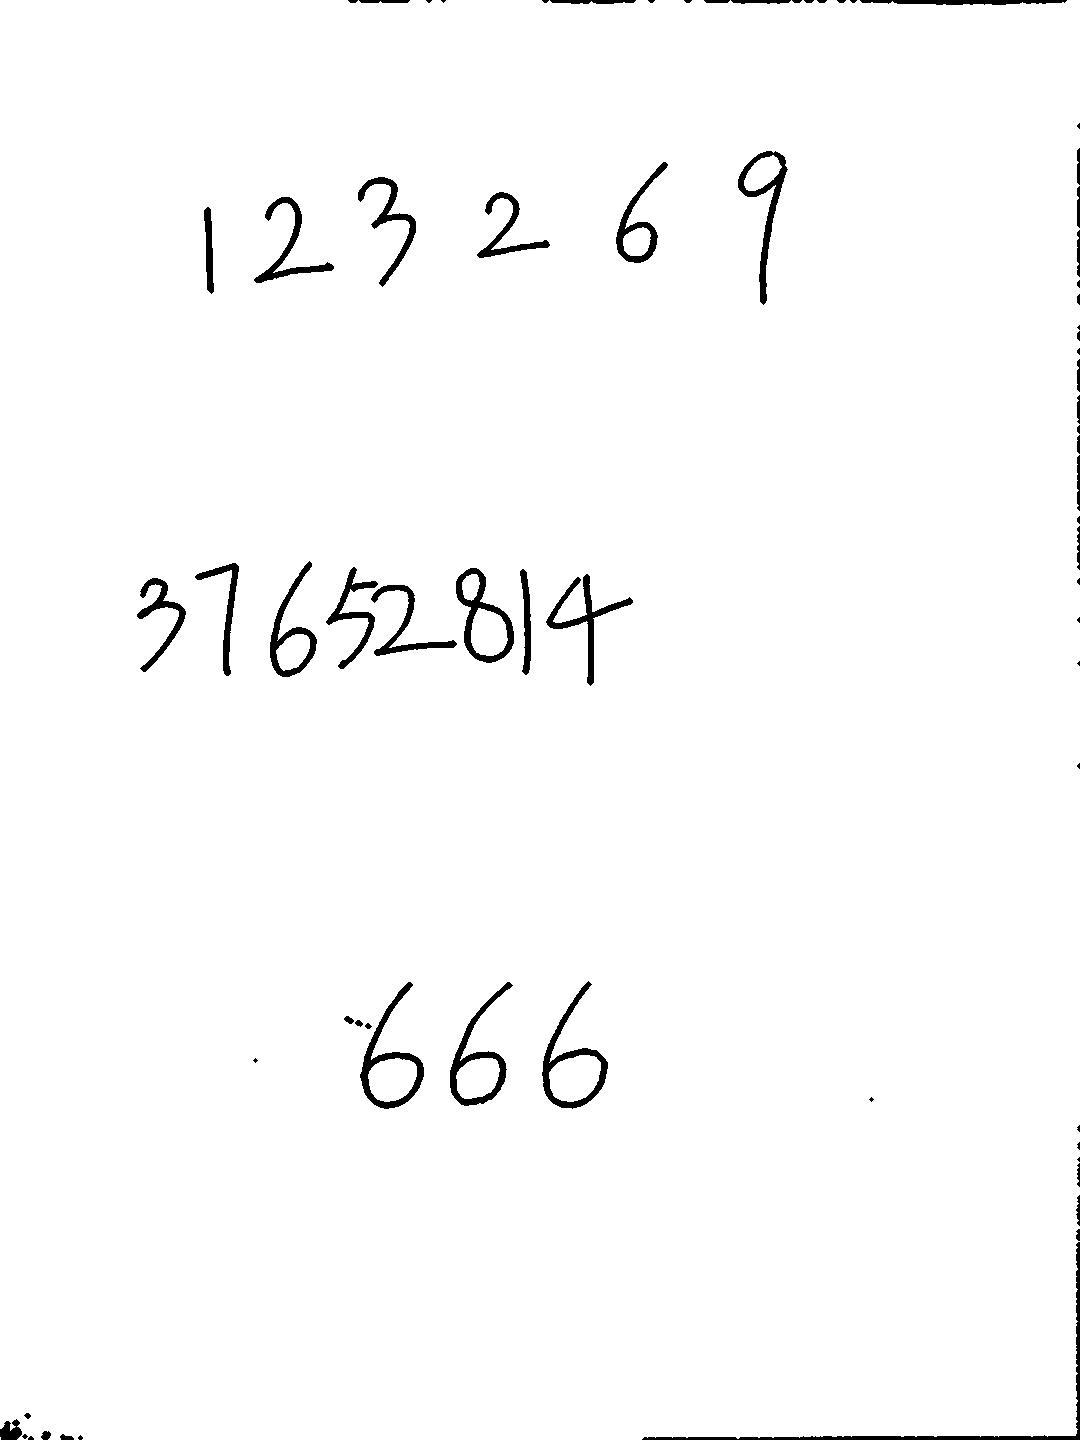 123269
37652814
666